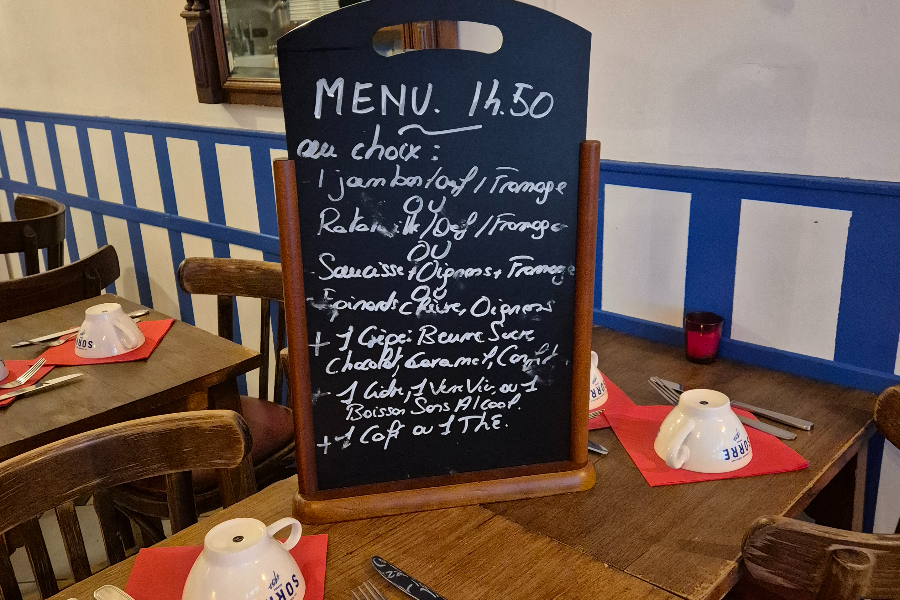 MENU. 14.50
au choix :
1 jambon/Oeuf/Fromage
OU
Ratatouille/Oeuf/Fromage
OU
Saucisse+Oignons+Fromage
OU
Epinards Chèvre, Oignons
+ 1 Crêpe: Beurre Sucre,
Chocolat, Caramel, Confit
- 1 Cidre, 1 Verre Vin, ou 1
Boisson Sans Alcool.
+ 1 Café ou 1 Thé.
SORRE
SORRE
SORRE